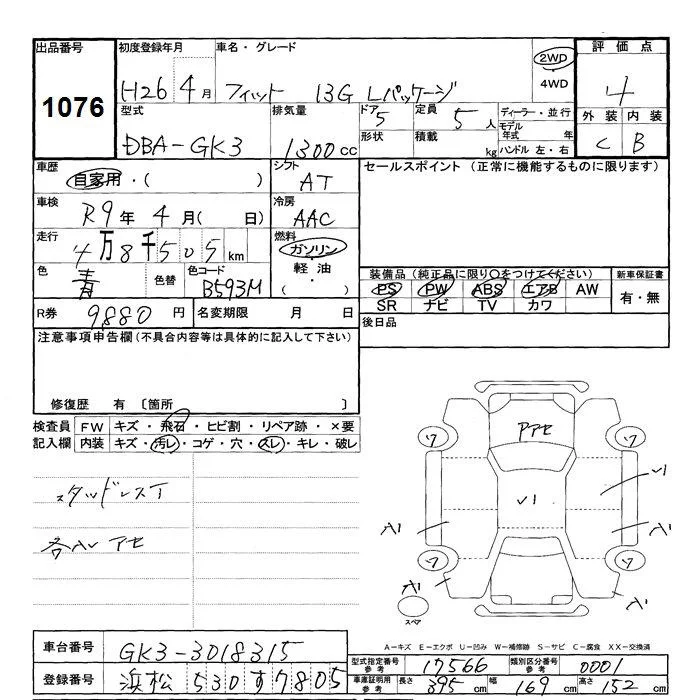 出品番号 初度登録年月 車名・グレード 2WD 評価点
1076 H26 4月 フィット 13G Lパッケージ 4WD 4
型式 排気量 ドア 5 定員 5人 ディーラー・並行 外装 内装
DBA-GK3 1300cc 形状 積載 kg モデル年式 年 C B
ハンドル 左・右
車歴 シフト セールスポイント (正常に機能するものに限ります)
自家用・( ) AT
車検 冷房
R9年 4月( 日) AAC
走行 燃料
4万8千505km ガソリン
色 青 色替 色コード B593M 軽油・( )
装備品(純正品に限り○をつけてください) 新車保証書
PS PW ABS エアB AW 有・無
SR ナビ TV カワ
R券 9880円 名変期限 月 日 後日品
注意事項申告欄(不具合内容等は具体的に記入して下さい)
修復歴 有 〔箇所 〕
検査員 FW キズ・飛石・ヒビ割・リペア跡・×要
記入欄 内装 キズ・汚レ・コゲ・穴・スレ・キレ・破レ
スタッドレスT
各AL アセ
アアセ
ワ ワ
V1 V1
A1 A1
ワ ワ
A1 A1
スペア
A-キズ E-エクボ U-凹み W-補修跡 S-サビ C-腐食 XX-交換済
車台番号 GK3-3018315
型式指定番号 参考 17566 類別区分番号 参考 0001
登録番号 浜松 530 す 7805
車庫証明用 参考 長さ 395cm 幅 169cm 高さ 152cm